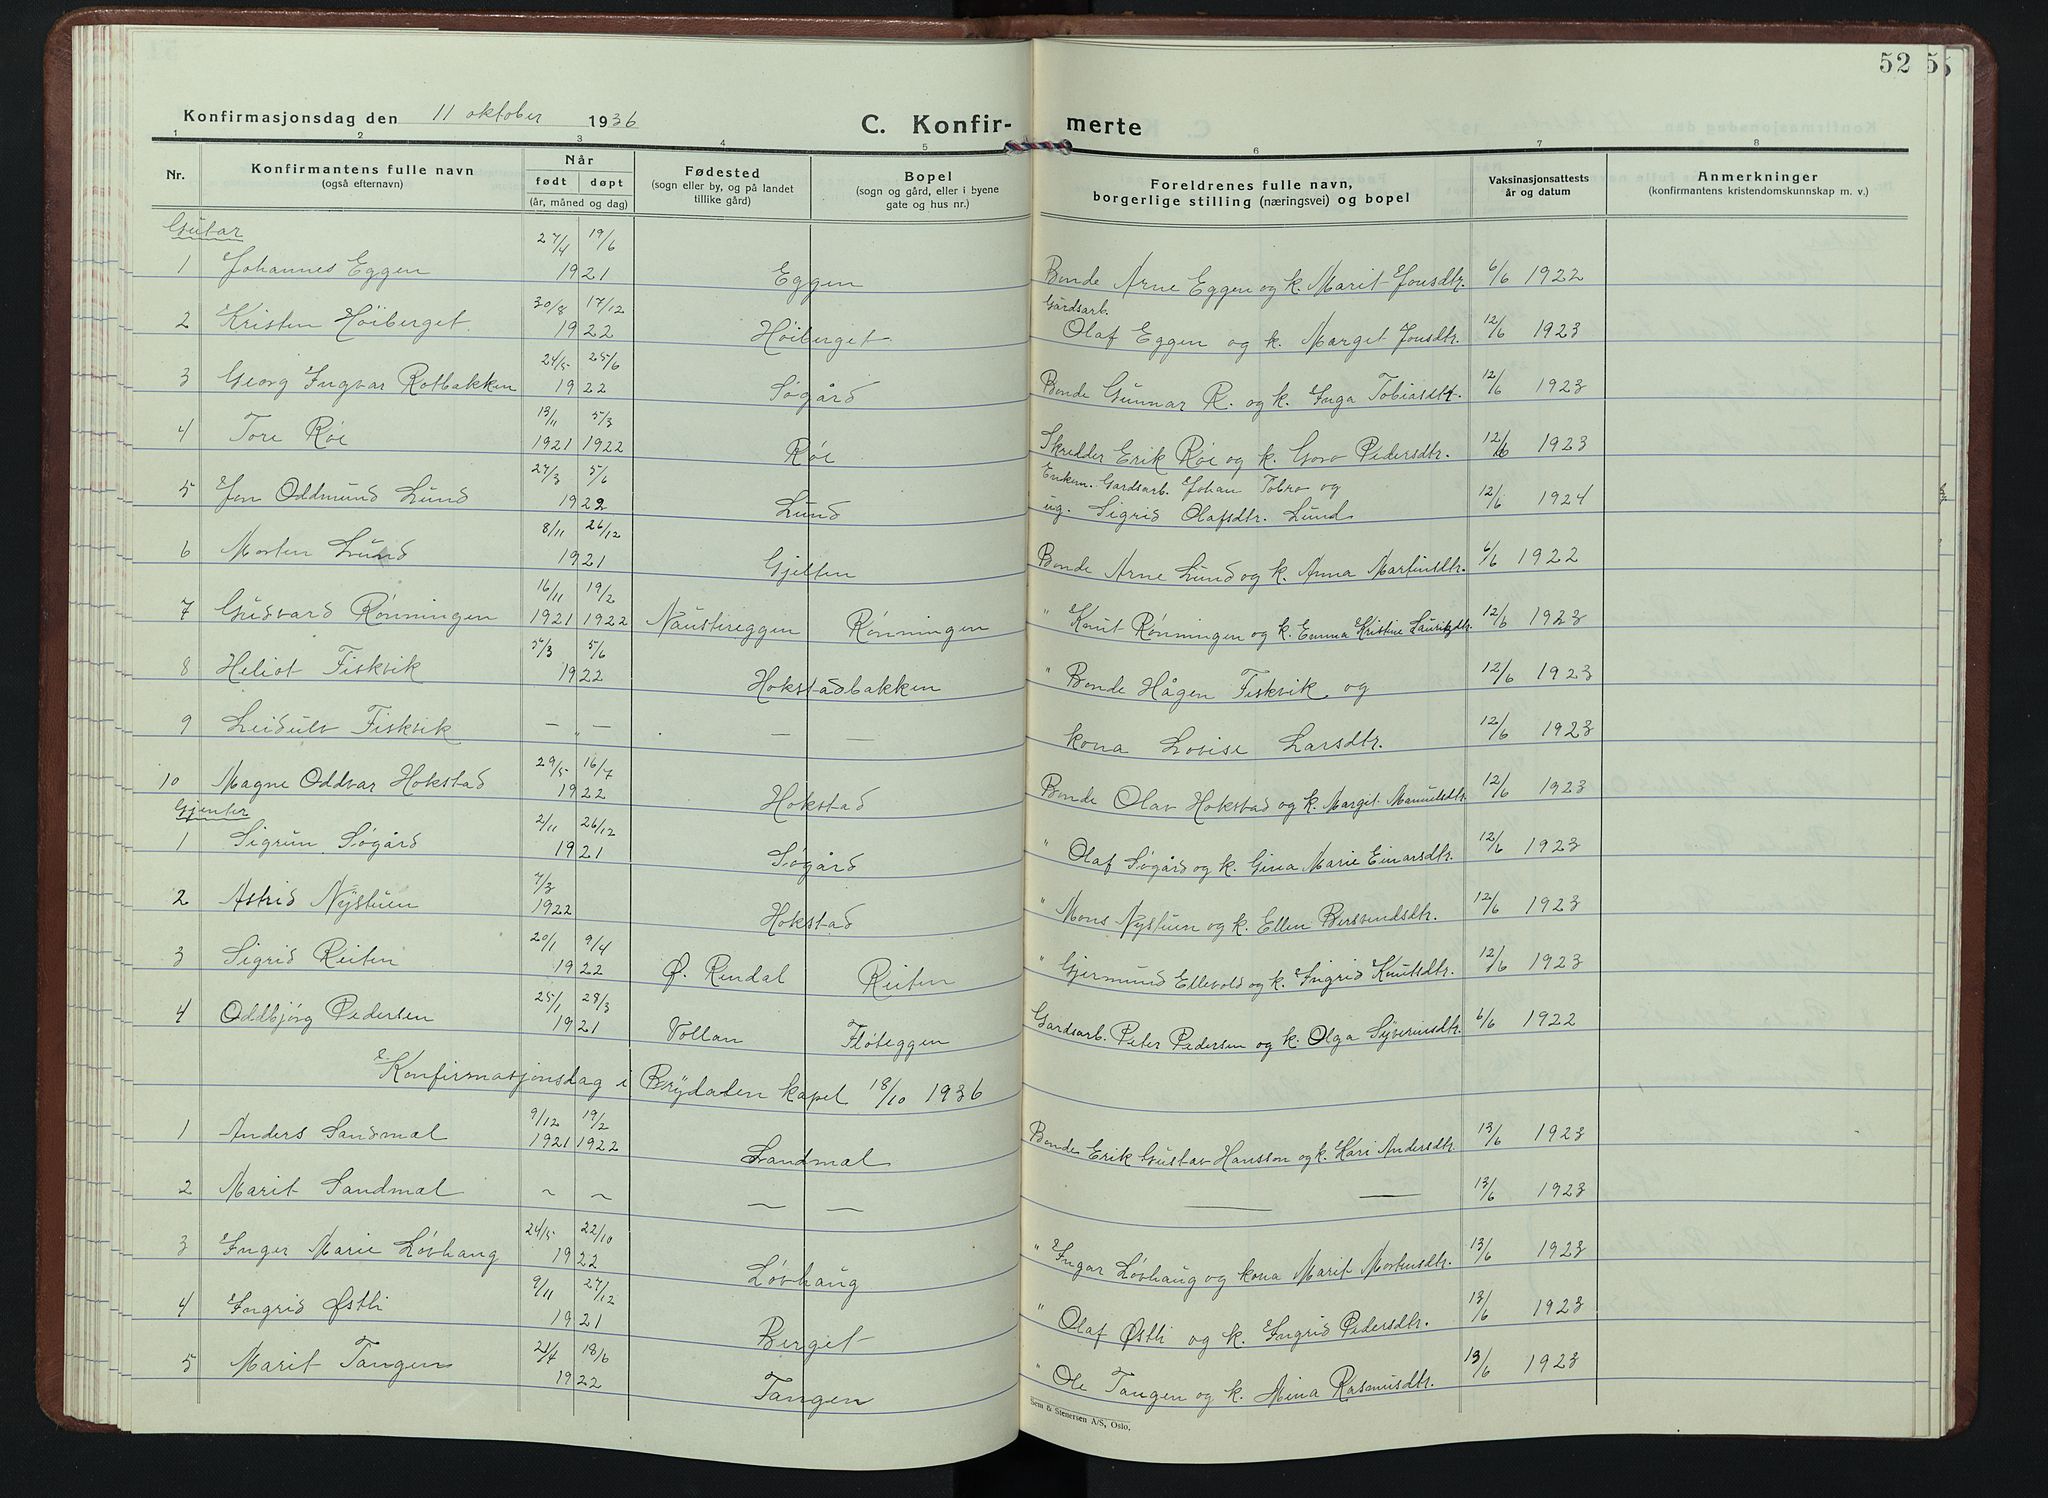 52
Konfirmasjonsdag den 11 oktober 1936
C. Konfir- merte
1 2 3 4 5 6 7 8
Nr.
Konfirmantens fulle navn
(også efternavn)
Når
født døpt
(år, måned og dag)
Fødested
(sogn eller by, og på landet
tillike gård)
Bopel
(sogn og gård, eller i byene
gate og hus nr.)
Foreldrenes fulle navn,
borgerlige stilling (næringsvei) og bopel
Vaksinasjonsattests
år og datum
Anmerkninger
(konfirmantens kristendomskunnskap m. v.)
Gutar
1 Johannes Eggen 27/4 19/6 1921 Eggen Bonde Arne Eggen og k. Marit Jonsdtr. 6/6 1922
2 Kristen Höiberget. 30/8 17/12 1922 Höiberget Gårdsarb. Olaf Eggen og k. Marget Jonsdtr. 12/6 1923
3 Georg Ingvar Rotbakken 24/5 25/6 1922 Søgård Bonde Gunnar R. og k. Inga Tobiasdtr. 12/6 1923
4 Tore Røe 13/11 1921 5/3 1922 Røe Skredder Erik Røe og k. Goro Pedersdtr. 12/6 1923
5 Jon Oddmund Lund 27/3 5/6 1922 Lund Enkem. Gardsarb. Johan Tobro og
ug. Sigrid Olafsdtr. Lund 12/6 1924
6 Morten Lund 8/11 26/12 1921 Gjelten Bonde Arne Lund og k. Anna Martinsdtr. 6/6 1922
7 Gudvard Rønningen 16/11 1921 19/2 1922 Naustereggen Rønningen " Knut Rønningen og k. Emma Kristine Lauritzdtr. 12/6 1923
8 Heliot Fiskvik 5/3 5/6 1922 Hokstadbakken " Bonde Hågen Fiskvik og 12/6 1923
9 Leidulv Fiskvik — " — — — kona Lovise Larsdtr. 12/6 1923
10 Magne Oddvar Hokstad 29/5 16/7 1922 Hokstad Bonde Olav Hokstad og k. Margit Manuelsdtr. 12/6 1923
Gjenter
1 Sigrun Søgård 2/11 26/12 1921 Søgård " Olaf Søgård og k. Gina Marie Einarsdtr. 12/6 1923
2 Astrid Nystuen 7/3 1922 Hokstad " Mons Nystuen og k. Ellen Bersvendsdtr. 12/6 1923
3 Sigrid Reiten 20/1 9/4 1922 Ø. Rendal Reiten " Gjermund Ellevold og k. Ingrid Knutsdtr. 12/6 1923
4 Oddbjørg Pedersen 25/1 28/3 1921 Vollan Fløteggen Gardsarb. Peter Pedersen og k. Olga Syverinsdtr. 6/6 1922
Konfirmasjonsdag i Brydalen kapel 18/10 1936
1 Anders Sandmæl 9/12 1921 19/2 1922 Sandmæl Bonde Erik Gustav Hansson og k. Kari Andersdtr. 13/6 1923
2 Marit Sandmæl ~ ~ — — — — 13/6 1923
3 Inger Marie Løvhaug 24/5 22/10 1922 Løvhaug " Ingar Løvhaug og kona Marit Mortensdtr. 13/6 1923
4 Ingrid Østli 9/11 27/12 1921 Berget " Olaf Østli og k. Ingrid Pedersdtr. 13/6 1923
5 Marit Tangen 18/6 1922 Tangen " Ole Tangen og k. Mina Rasmusdtr. 13/6 1923
Sem & Stenersen A/S, Oslo.